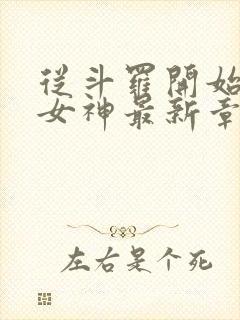 從斗羅開始
女神最新章
左右是个死